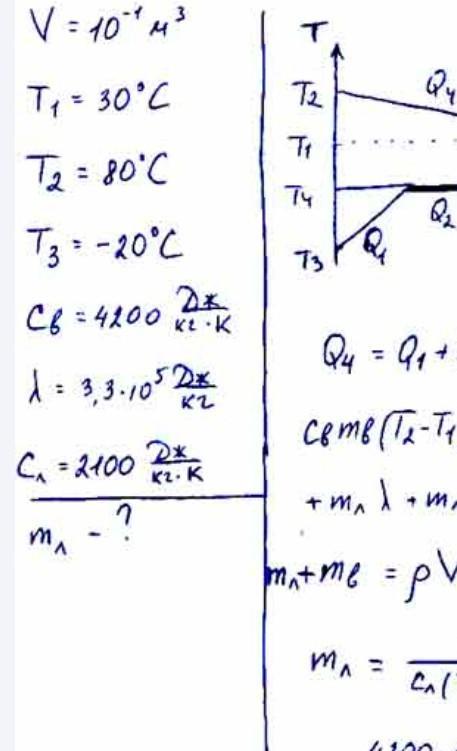 V = 10⁻¹ м³
T₁ = 30°C
T₂ = 80°C
T₃ = -20°C
Cв = 4200 Дж/кг·К
λ = 3,3·10⁵ Дж/кг
Cл = 2100 Дж/кг·К
mл - ?
T
T₂
Q₄
T₁
T₄
Q₂
T₃
Q₁
Q₄ = Q₁ +
Cв mв (T₂-T₁
+ mл λ + mл
mл + mв = ρV
mл =
Cл (
4200